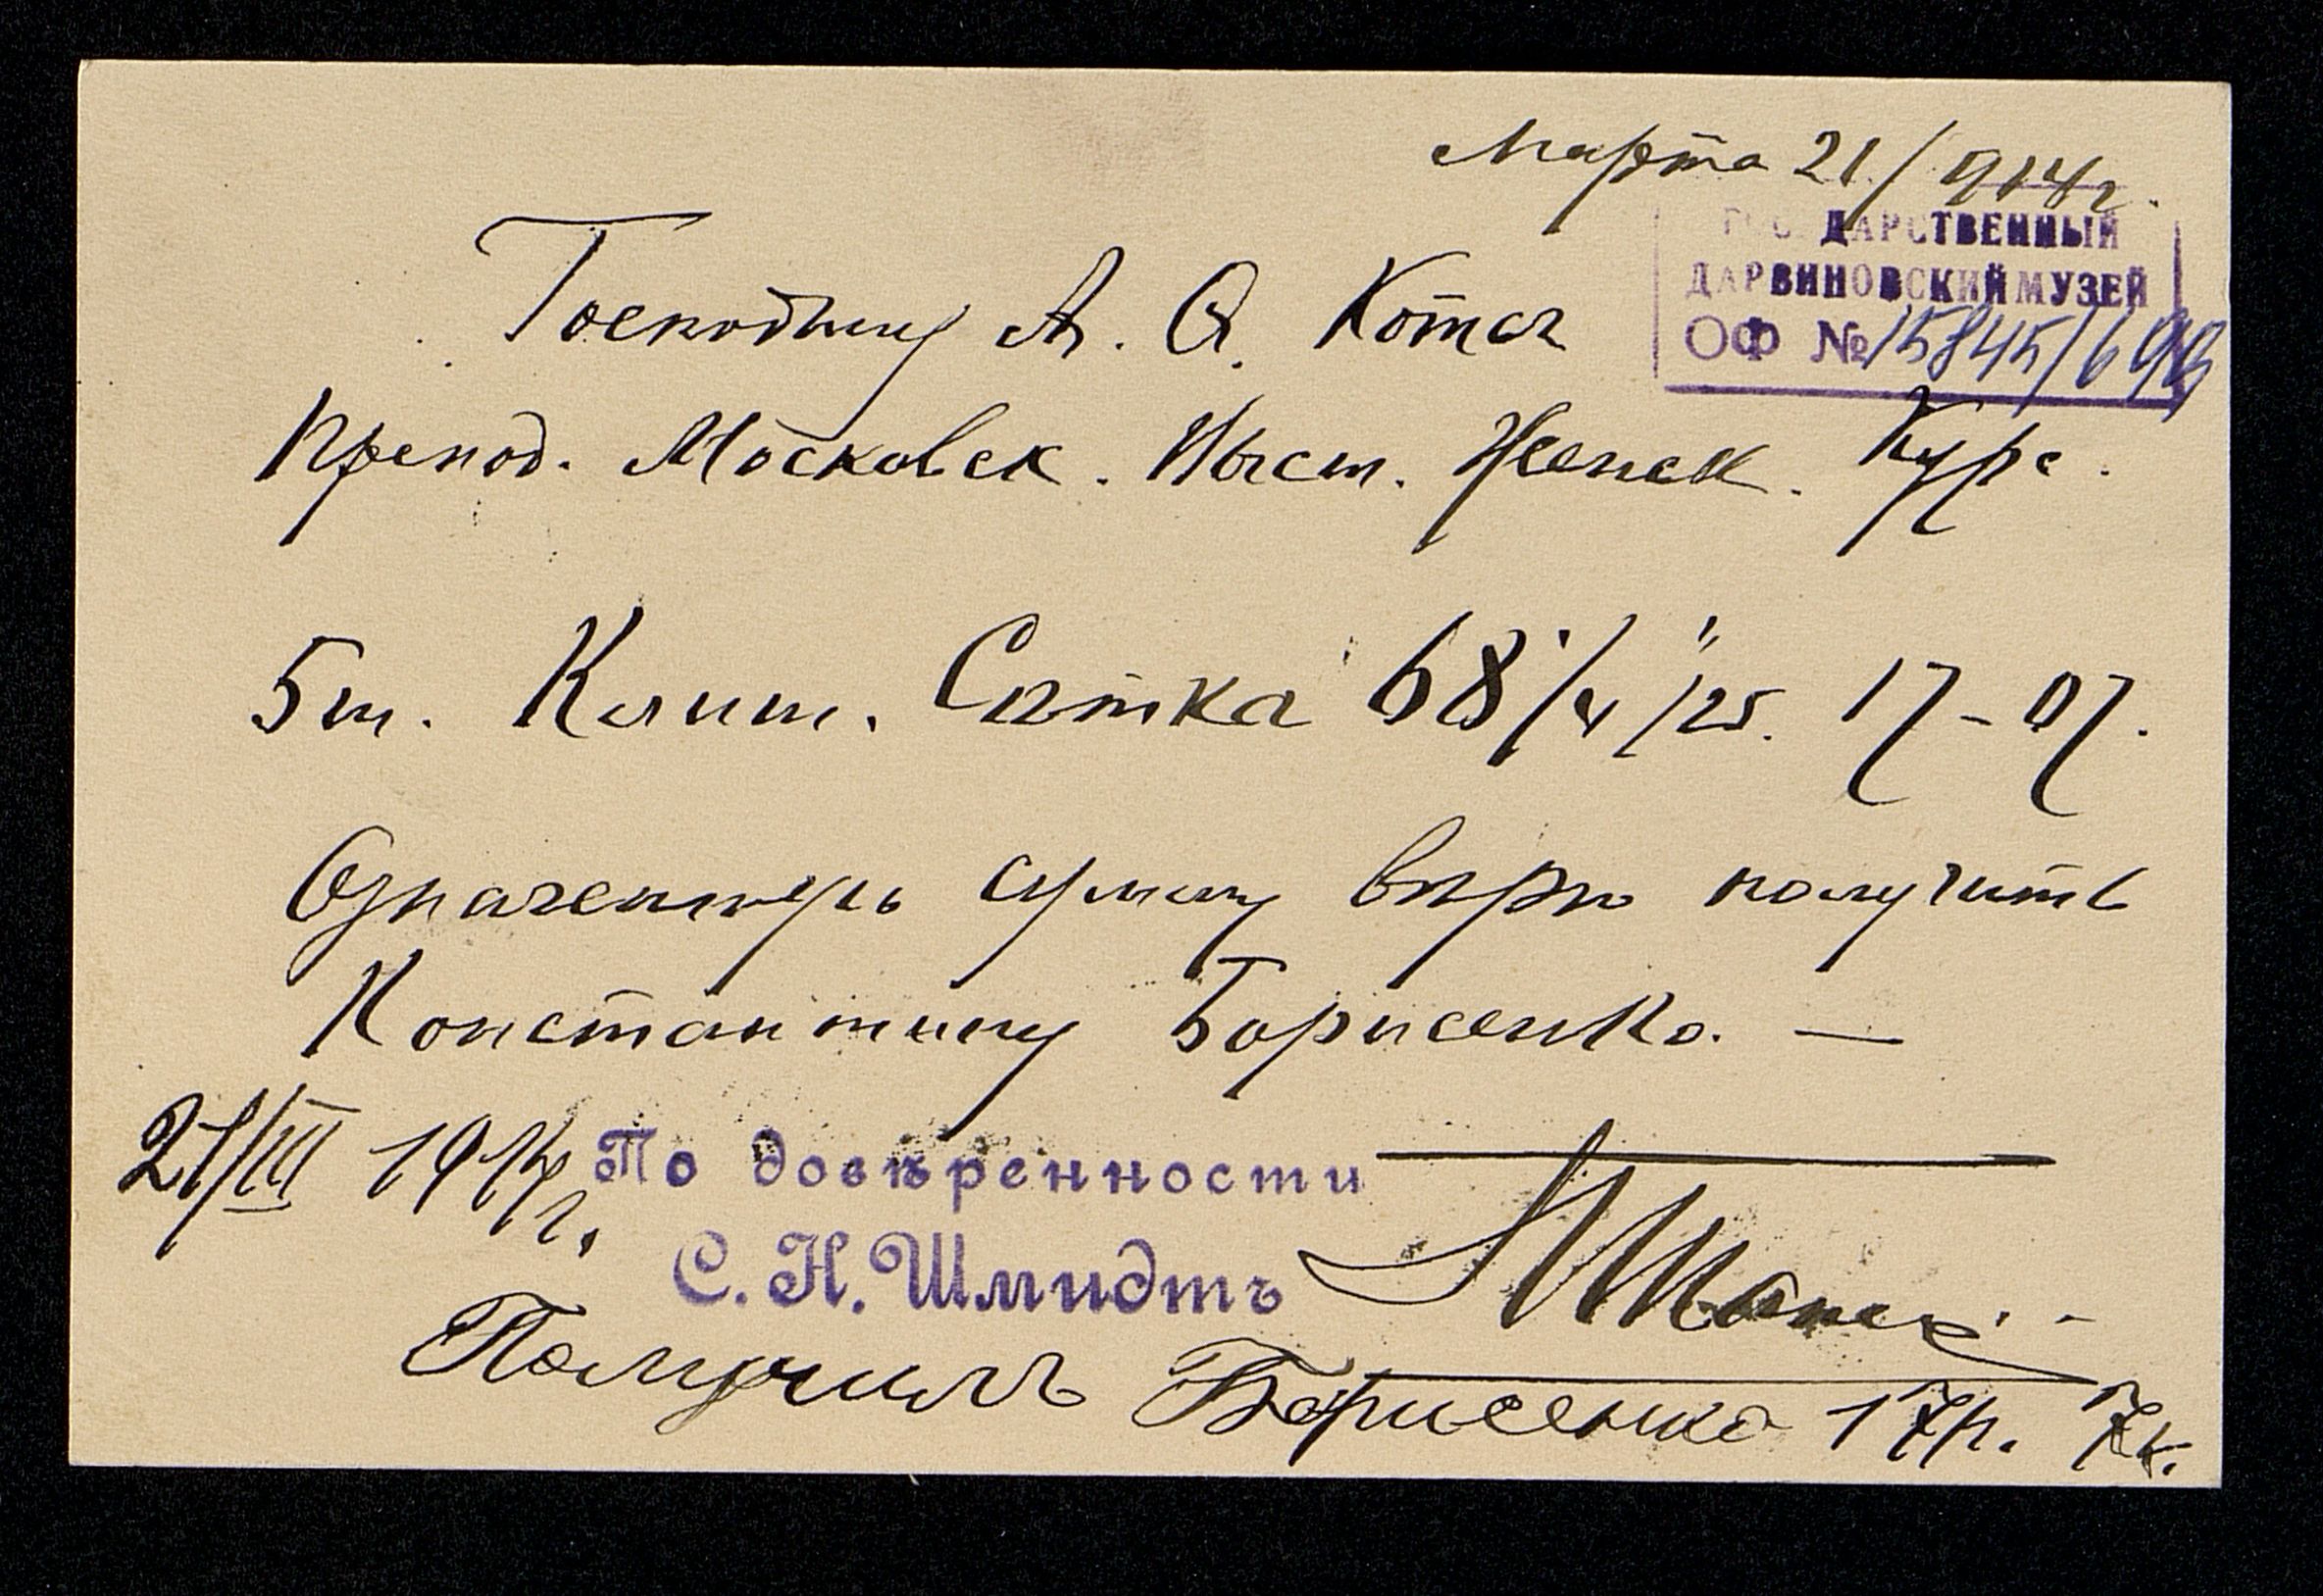 Марта 21/914 г.
ГОСУДАРСТВЕННЫЙ
ДАРВИНОВСКИЙ МУЗЕЙ
ОФ № 15845/693
Господину А. Ф. Котсъ
Препод. Московск. Выст. Женск. Курс.
5 ш. Клиш. Сѣтка 68 /25. 17-07.
Означенную сумму вѣрю получить
Константину Борисенко. —
21/III 1914 г. По довѣренности
С. Н. Шмидтъ
Получилъ Борисенко 17 р. 7 к.